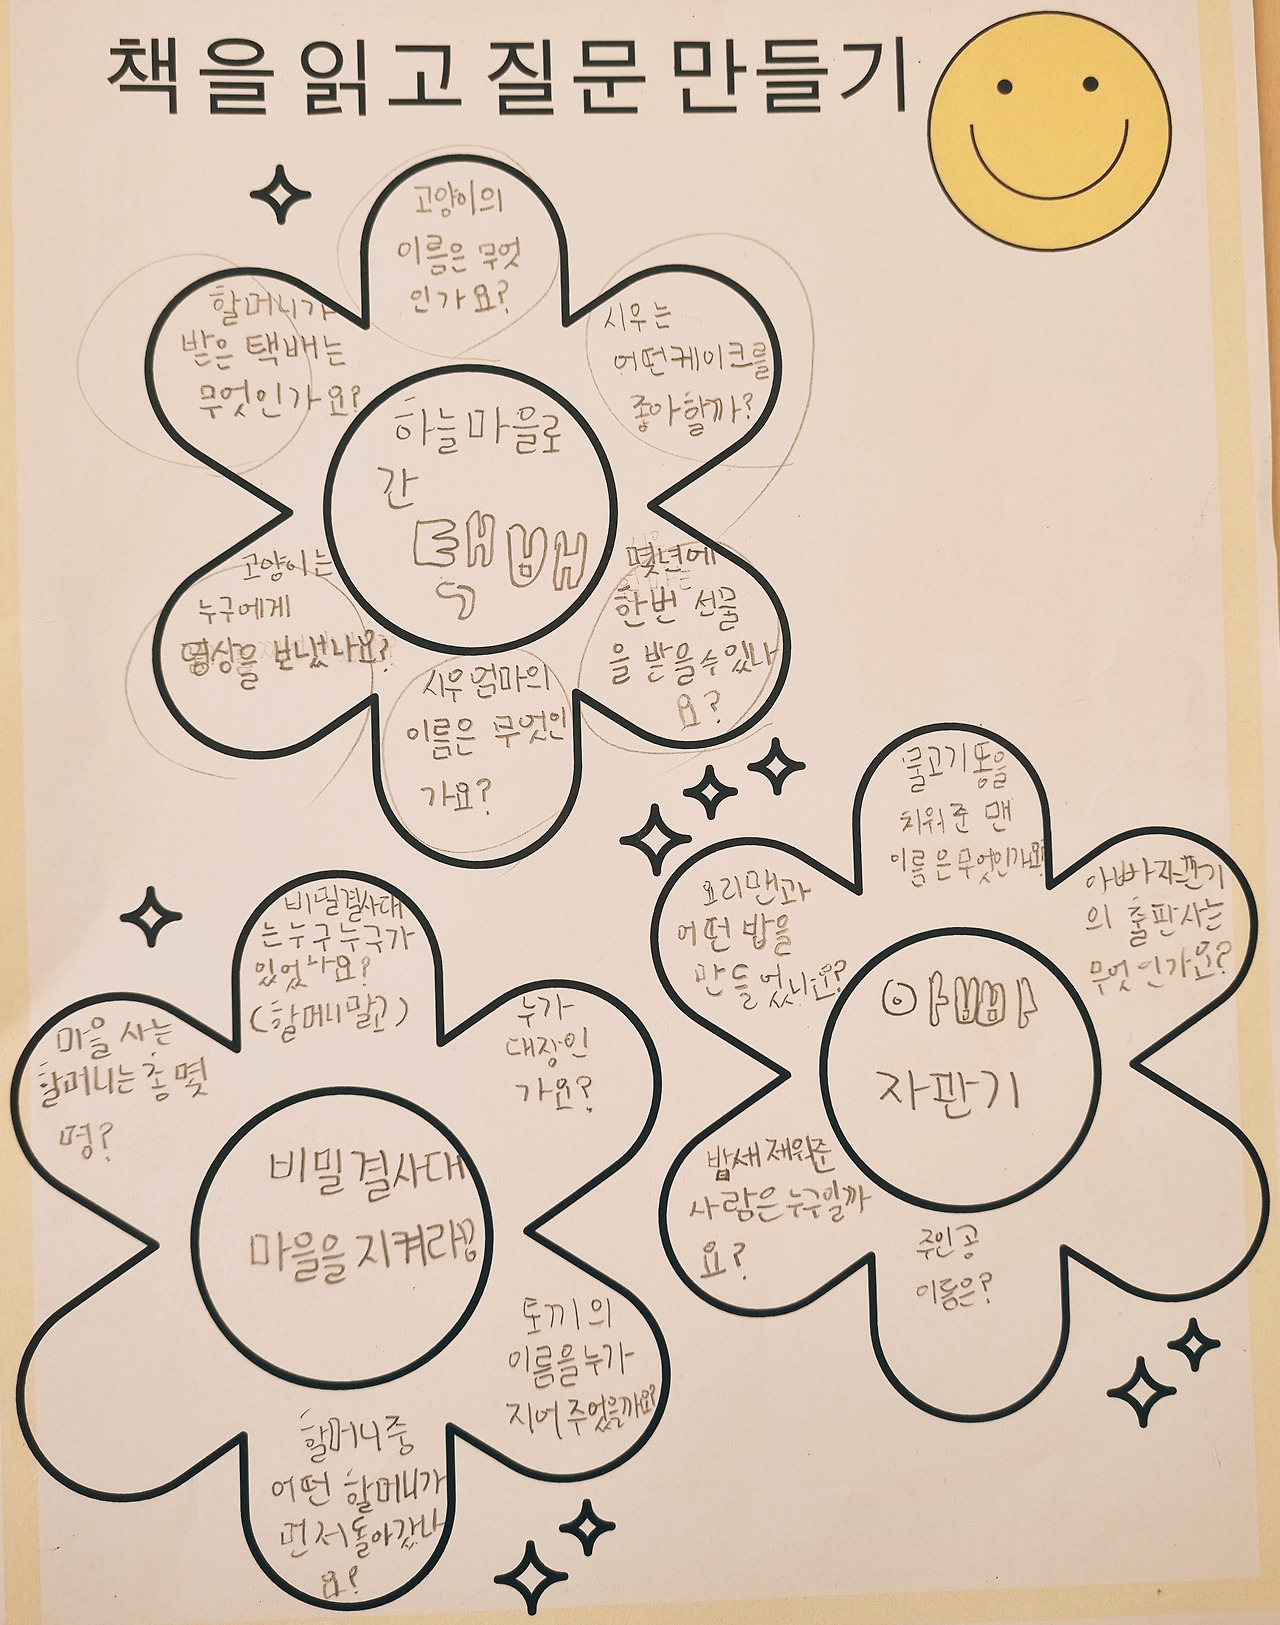 책을 읽고 질문 만들기
고양이의
이름은 무엇
인가요?
할머니가
받은 택배는
무엇인가요?
시우는
어떤케이크를
좋아할까?
하늘마을로
간
택배
고양이는
누구에게
영상을 보냈나요?
몇년에
한번 선물
을 받을수있나
요?
시우엄마의
이름은 무엇인
가요?
물고기똥을
치워준 맨
이름은무엇인가요?
요리맨과
어떤 밥을
만들었나요?
아빠자판기
의 출판사는
무엇인가요?
아빠
자판기
밥새제워준
사람은누구일까
요?
주인공
이름은?
비밀결사대
는누구누구가
있었나요?
(할머니말고)
마을 사는
할머니는총몇
명?
누가
대장인
가요?
비밀결사대
마을을지켜라
토끼의
이름을누가
지어주었을까요?
할머니중
어떤 할머니가
먼저돌아갔나
요?